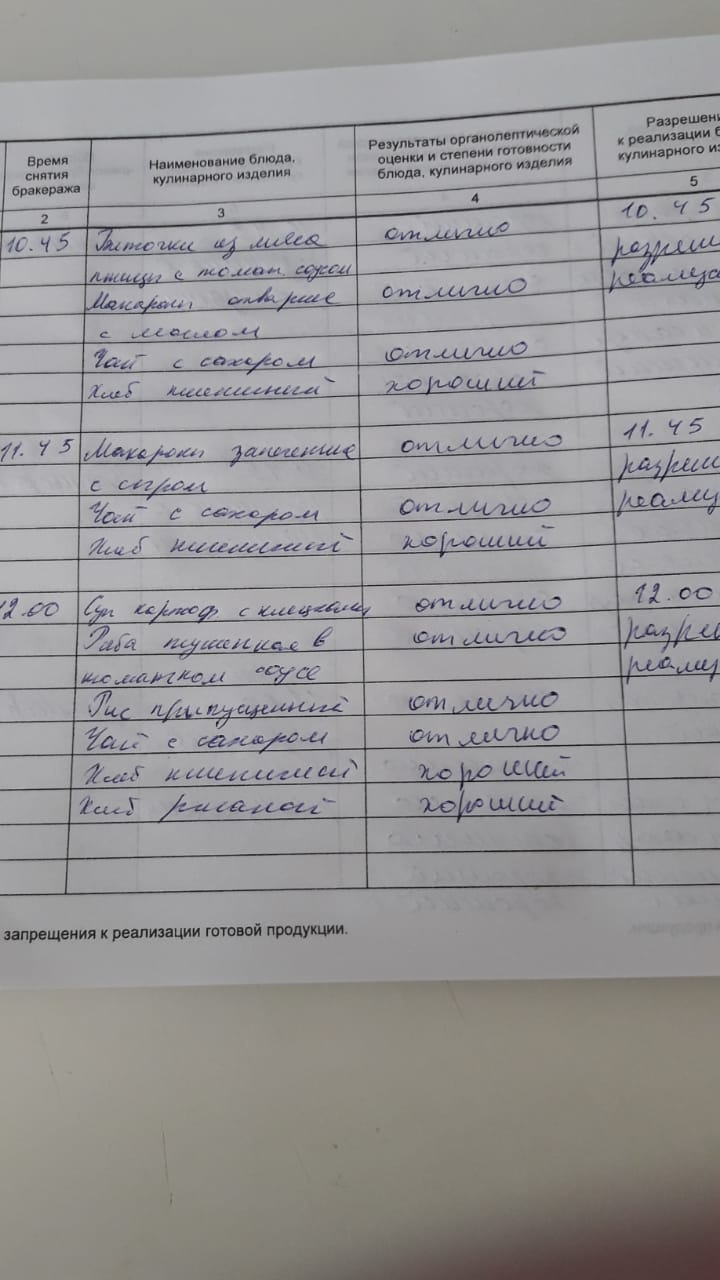 Время
снятия
бракеража
Наименование блюда,
кулинарного изделия
Результаты органолептической
оценки и степени готовности
блюда, кулинарного изделия
Разрешени
к реализации б
кулинарного из
2 3 4 5
10.45 Биточки из мяса отлично 10.45
птицы с томат. соусом разреш
Макароны отварные отлично реализа
с маслом
Чай с сахаром отлично
Хлеб пшеничный хороший
11.45 Макароны запеченные отлично 11.45
с сыром разреш
Чай с сахаром отлично реализ
Хлеб пшеничный хороший
12.00 Суп картоф. с клецками отлично 12.00
Рыба тушенная в отлично разре
томатном соусе реализ
Рис припущенный отлично
Чай с сахаром отлично
Хлеб пшеничный хороший
Хлеб ржаной хороший
запрещения к реализации готовой продукции.